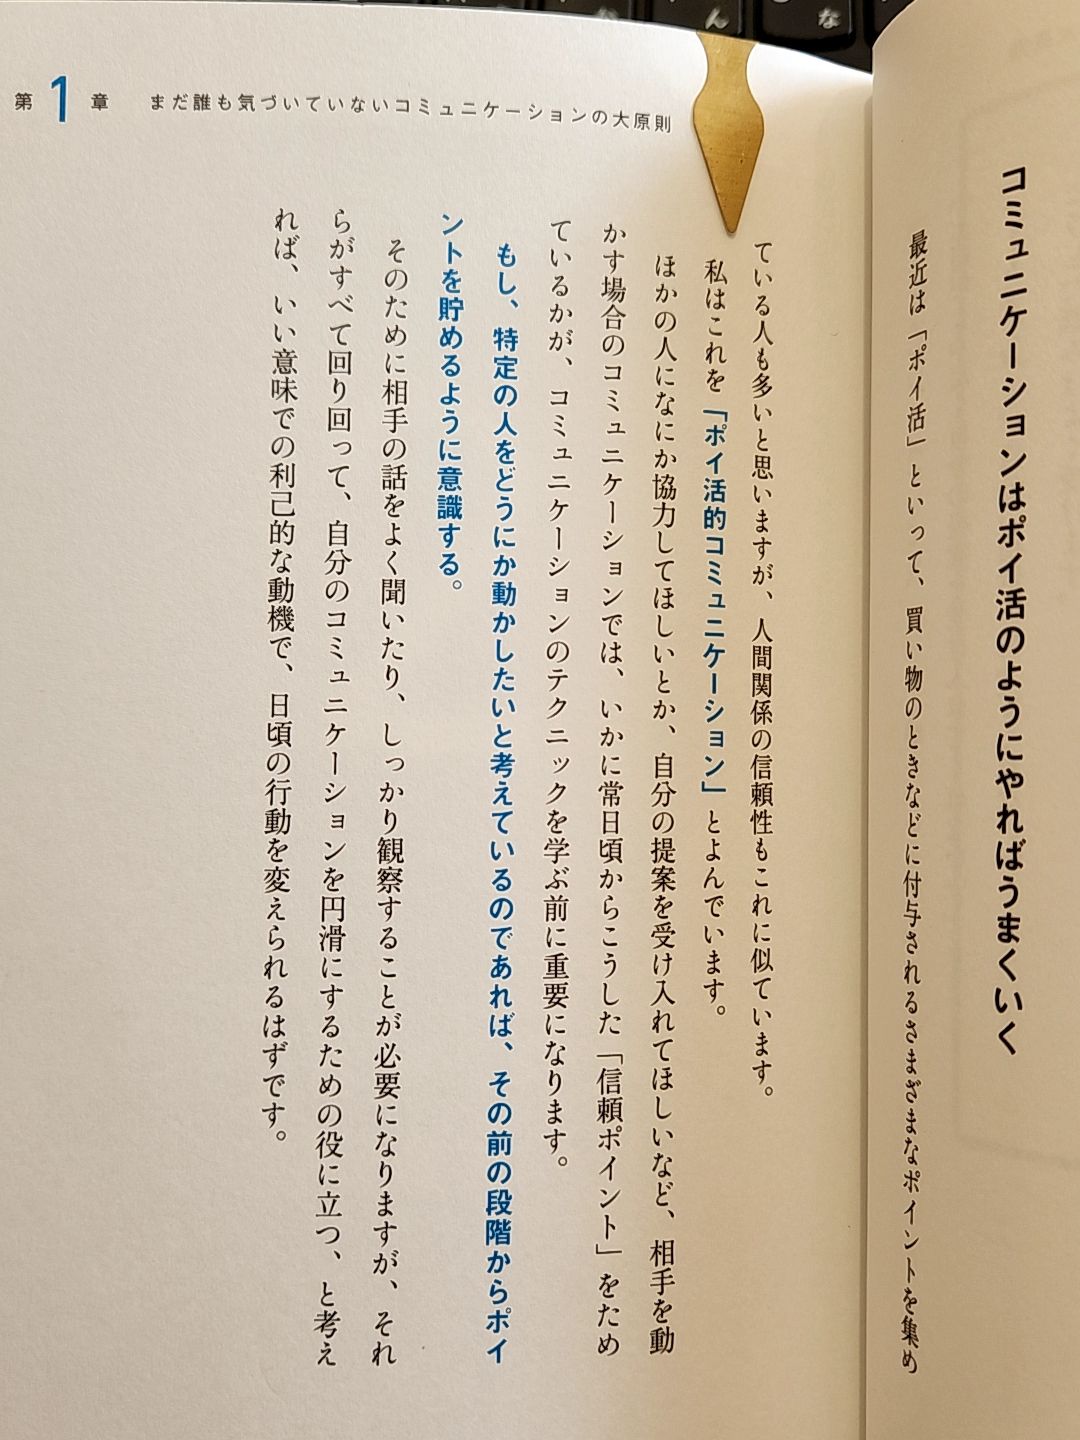 コミュニケーションはポイ活のようにやればうまくいく
最近は「ポイ活」といって、買い物のときなどに付与されるさまざまなポイントを集め
第1章 まだ誰も気づいていないコミュニケーションの大原則
ている人も多いと思いますが、人間関係の信頼性もこれに似ています。
私はこれを「ポイ活的コミュニケーション」とよんでいます。
ほかの人になにか協力してほしいとか、自分の提案を受け入れてほしいなど、相手を動
かす場合のコミュニケーションでは、いかに常日頃からこうした「信頼ポイント」をため
ているかが、コミュニケーションのテクニックを学ぶ前に重要になります。
もし、特定の人をどうにか動かしたいと考えているのであれば、その前の段階からポイ
ントを貯めるように意識する。
そのために相手の話をよく聞いたり、しっかり観察することが必要になりますが、それ
らがすべて回り回って、自分のコミュニケーションを円滑にするための役に立つ、と考え
れば、いい意味での利己的な動機で、日頃の行動を変えられるはずです。
ん
な